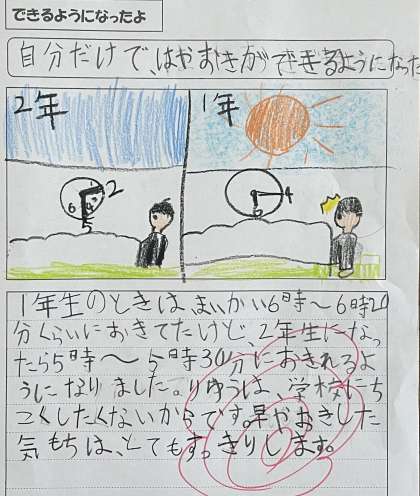 できるようになったよ
自分だけではやおきができるようになった
2年
1年
2
6
5
4
6
1年生のときは、まいかい6時〜6時20
分くらいにおきてたけど、2年生になっ
たら5時〜5時30分におきれるよ
うになりました。りゆうは、学校にち
こくしたくないからです。早やおきした
気もちは、とてもすっきりします。